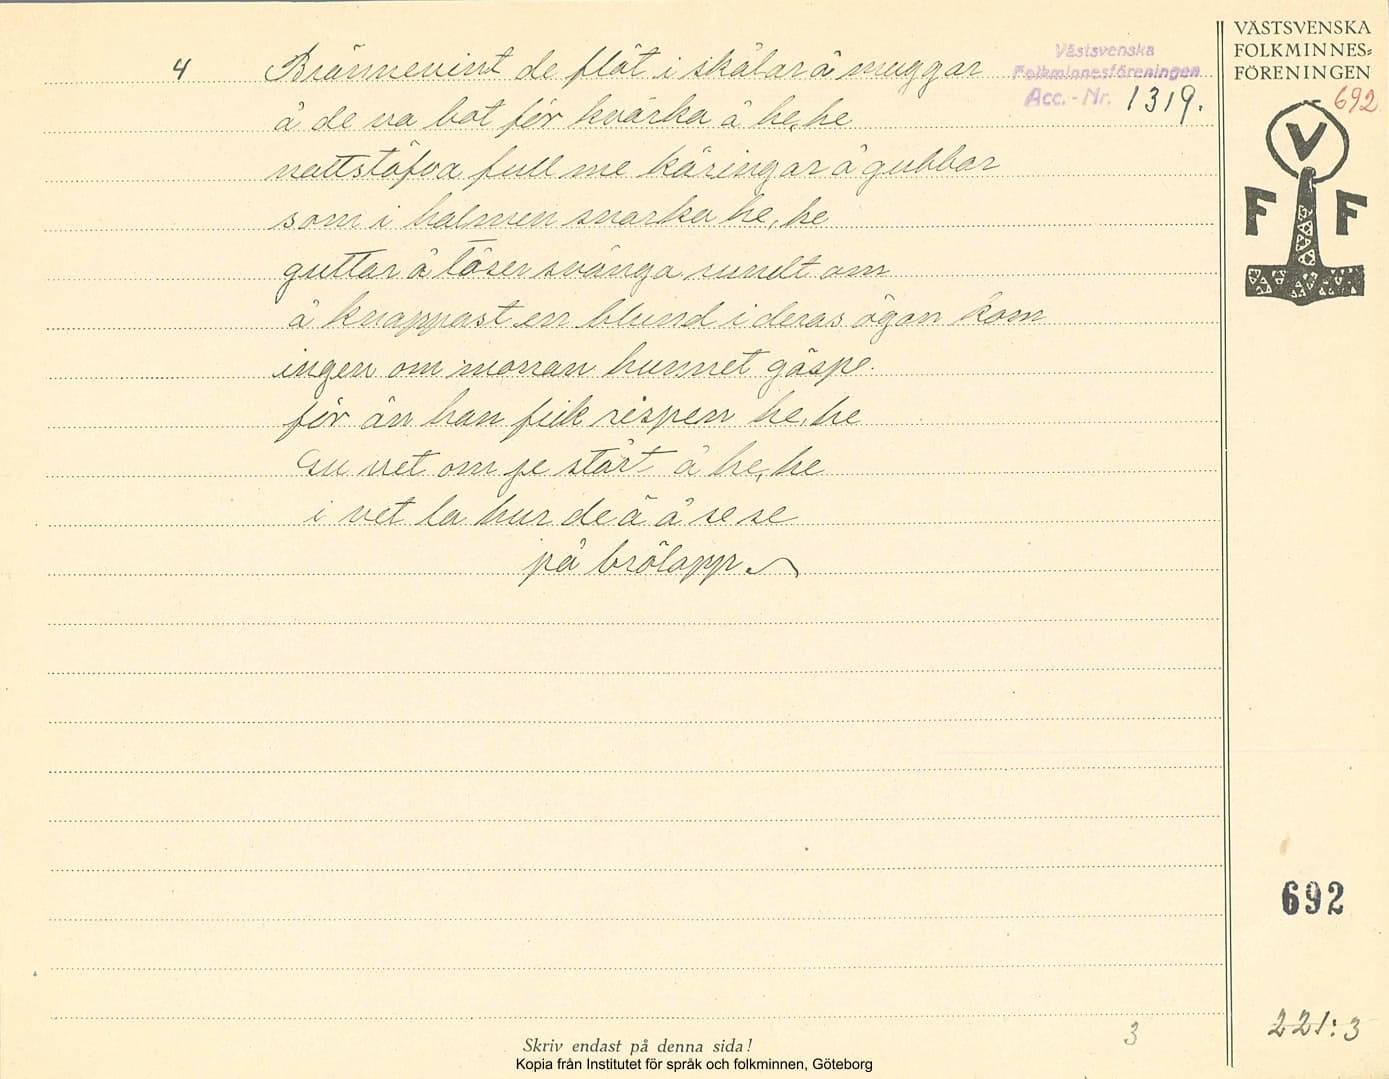 VÄSTSVENSKA
FOLKMINNES-
FÖRENINGEN
692
Västsvenska
Folkminnesföreningen
Acc.-Nr. 1319.
V
F F
4 Brännevint de flöt i skålar å muggar
å de va bot för kvärka å he, he
nattstöfva full me käringar å gubbar
som i halmen snarka he, he
guttar å töser svänga rundt om
å knappast en blund i deras ögon kom
ingen om morran hunnet gäspe.
för än han fick rispen he, he
Gu vet om je stårt å he, he
i vet la hur de ä å se se
på brölapp.
692
3
221:3
Skriv endast på denna sida!
Kopia från Institutet för språk och folkminnen, Göteborg